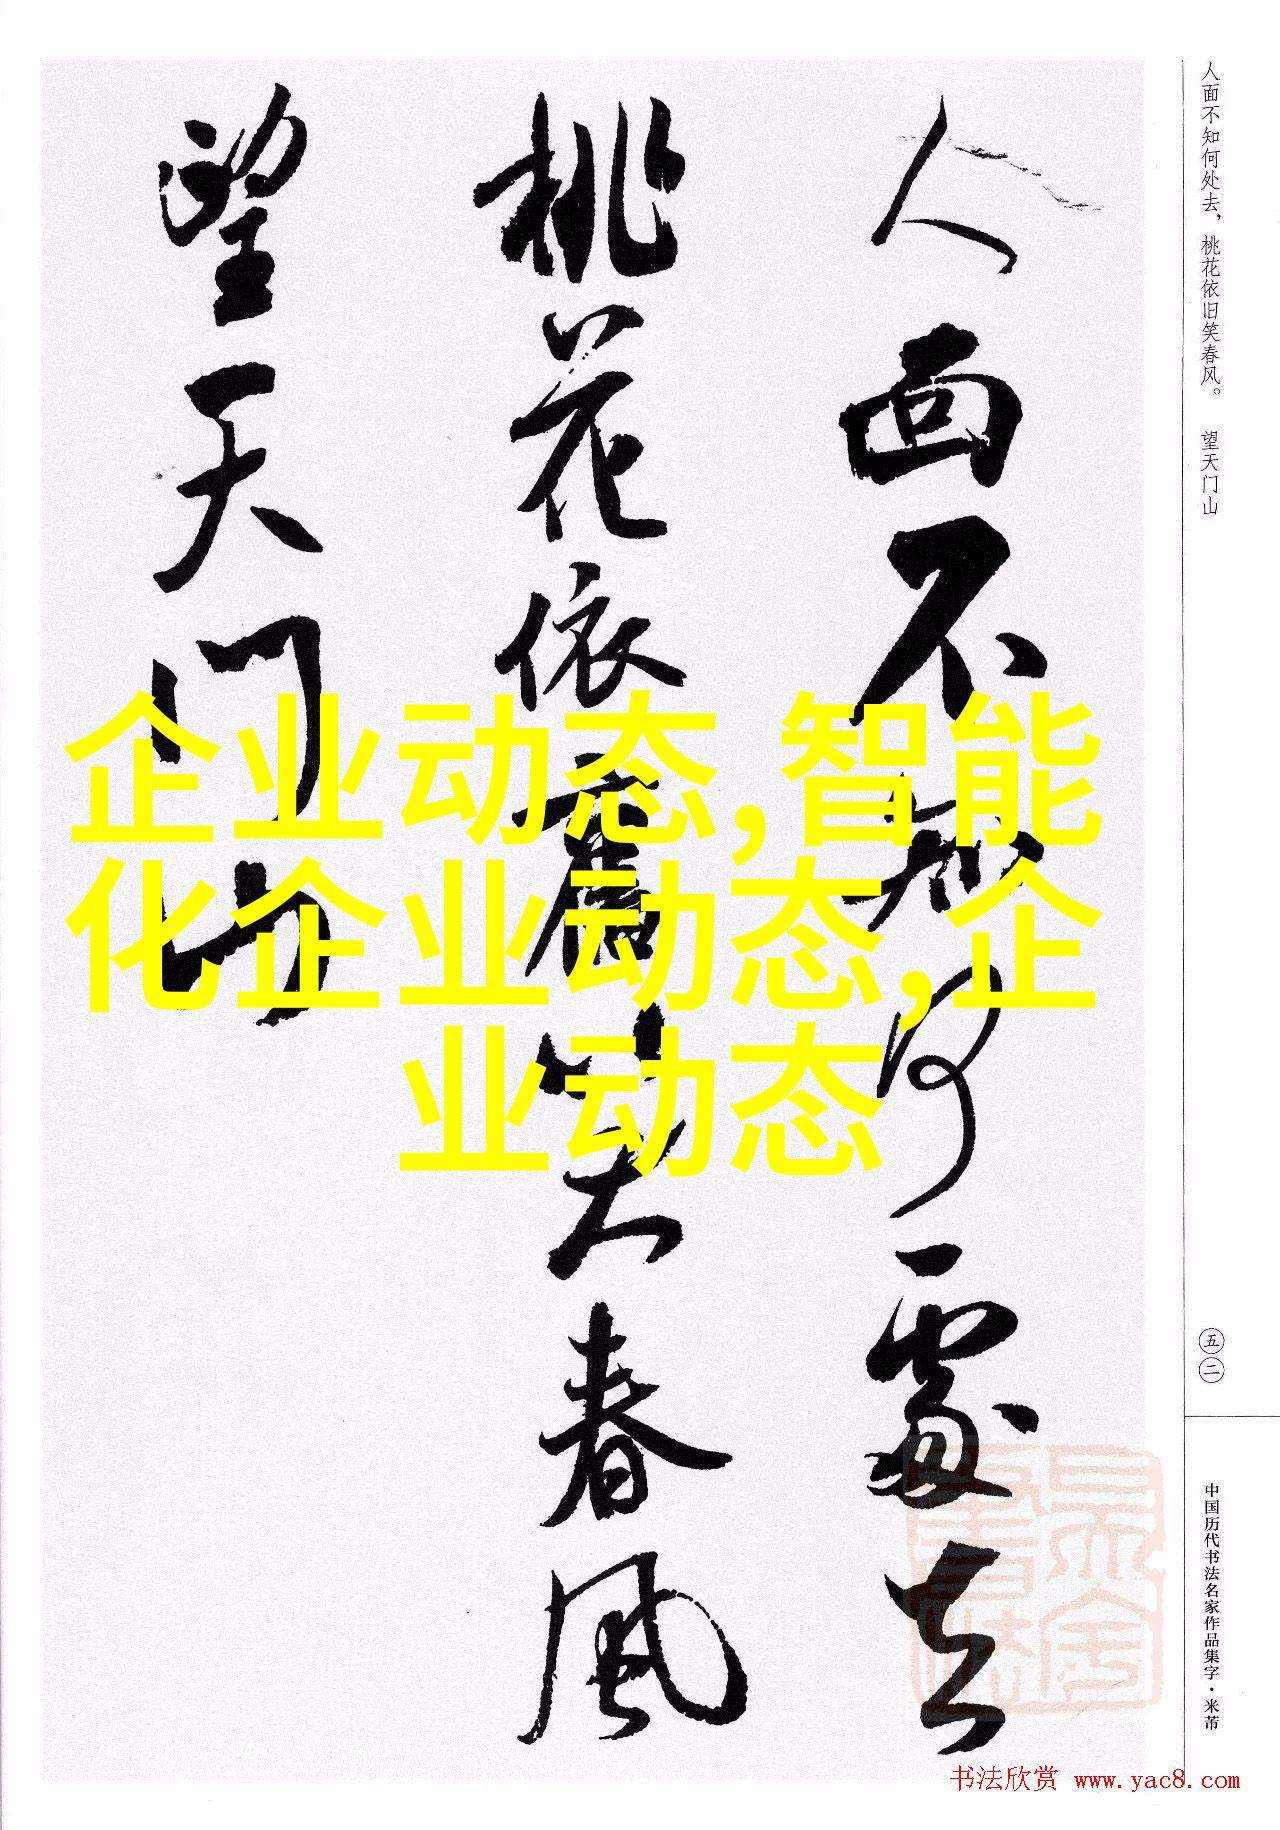 人面不知何處去
桃花依舊笑春風
望天门山
人面不知何处去，桃花依旧笑春风。 望天门山
企业动态,智能
化企业动态,企
业动态
五二
中国历代书法名家作品集字·米芾
书法欣赏 www.yac8.com